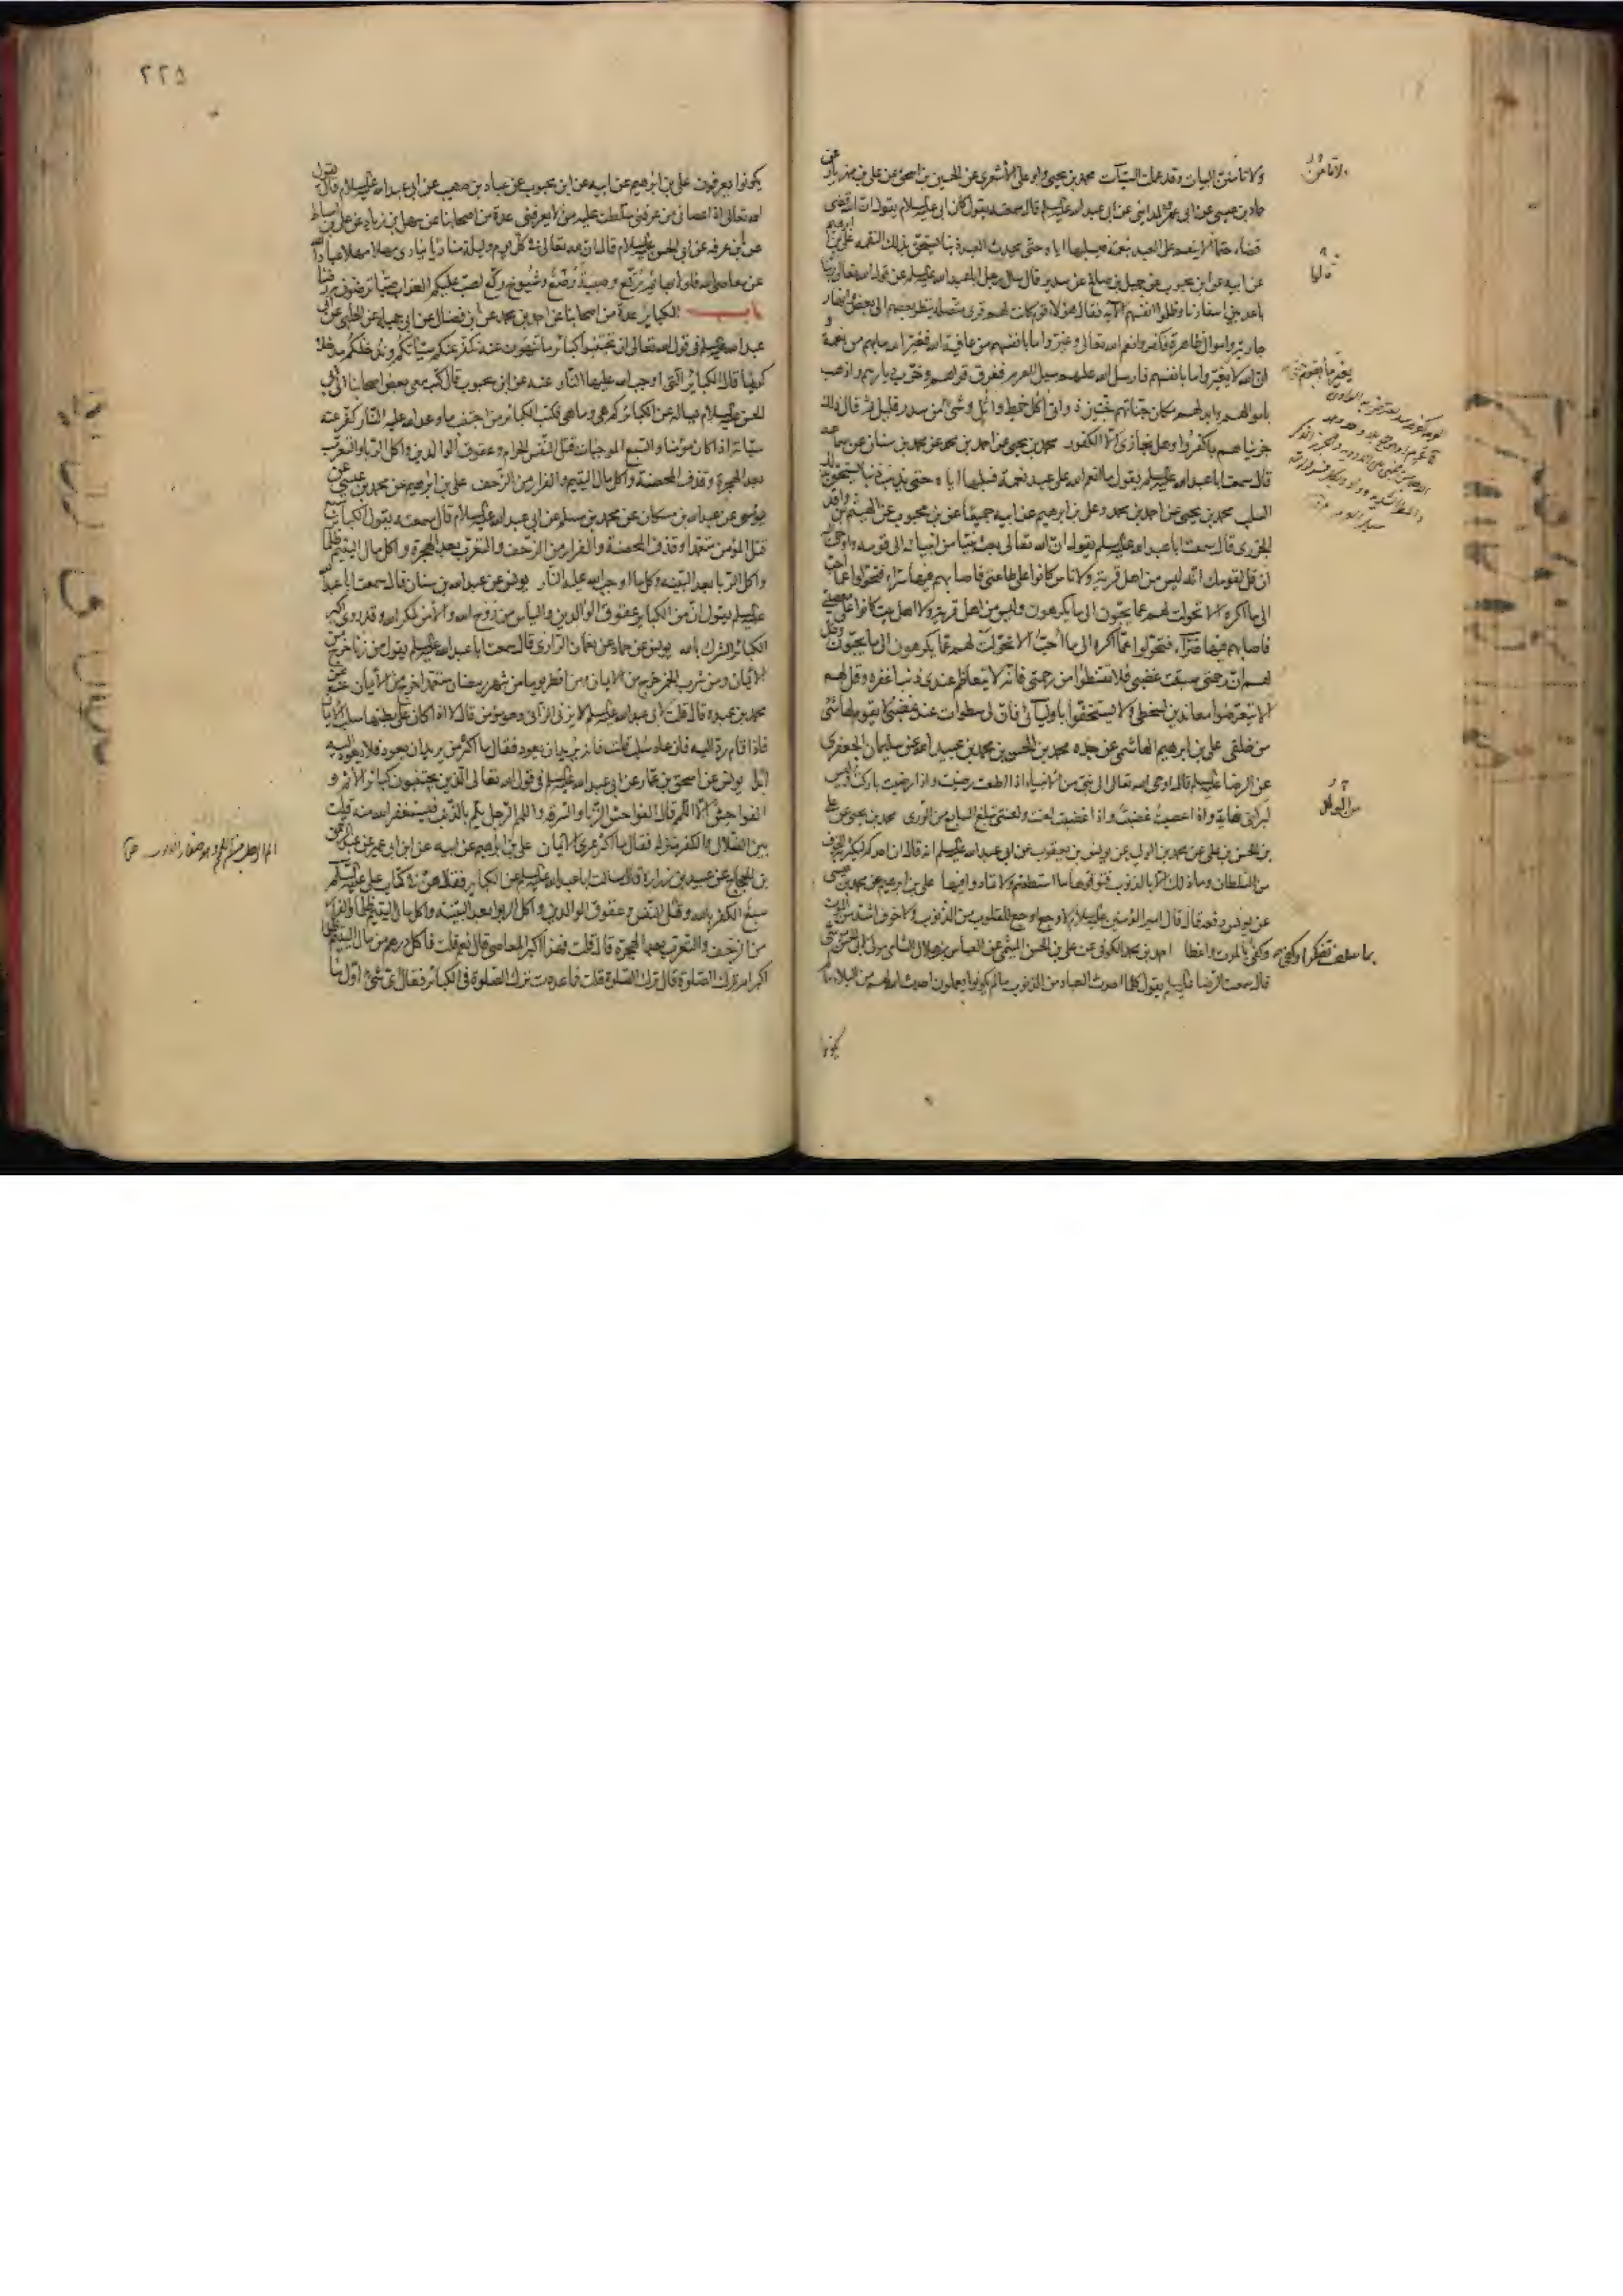 ولا تأمنن البيات وقد عملت السيئات محمد بن يحيى وابو على الاشعرى عن الحسين بن اسحق عن على بن مهزيار عن
حماد بن عيسى عن ابى عمرو المداينى عن ابى عبد الله عليه السلام قال سمعته يقول كان ابى عليه السلام يقول ان الله قضى
قضاء حتما الا ينعم على العبد بنعمة فيسلبها اياه حتى يحدث العبد ذنبا يستحق بذلك النقمة على بن ابرهيم
عن ابيه عن ابن محبوب عن جميل بن صالح عن سدير قال سال رجل ابا عبد الله عليه السلام عن قول الله تعالى ربنا
باعد بين اسفارنا وظلموا انفسهم الآية فقال هؤلاء قوم كانت لهم قرى متصلة ينظر بعضهم الى بعض وانهار
جارية واموال ظاهرة فكفروا نعم الله تعالى وغيروا ما بانفسهم من عافية الله فغير الله ما بهم من نعمة و
ان الله لا يغير ما بانفسهم فارسل الله عليهم سيل العرم فغرق قراهم وخرب ديارهم واذهب
باموالهم وابدلهم مكان جناتهم جنتين ذواتى اكل خمط واثل وشئ من سدر قليل ثم قال ذلك
جزيناهم بما كفروا وهل نجازى الا الكفور محمد بن يحيى عن احمد بن محمد عن محمد بن سنان عن سماعة
قال سمعت ابا عبد الله عليه السلام يقول ما انعم الله على عبد نعمة فسلبها اياه حتى يذنب ذنبا يستحق بذلك
السلب محمد بن يحيى عن احمد بن محمد وعلى بن ابرهيم عن ابيه جميعا عن بن محبوب عن الهيثم بن واقد
الجزرى قال سمعت ابا عبد الله عليه السلام يقول ان الله تعالى بعث نبيا من انبيائه الى قومه واوحى اليه
ان قل لقومك انه ليس من اهل قرية ولا ناس كانوا على طاعتى فاصابهم فيها سراء فتحولوا عما احب
الى ما اكره الا تحولت لهم عما يحبون الى ما يكرهون وليس من اهل قرية ولا اهل بيت كانوا على معصيتى
فاصابهم فيها ضراء فتحولوا عما اكره الى ما احب الا تحولت لهم عما يكرهون الى ما يحبون وقل
لهم ان رحمتى سبقت غضبى فلا تقنطوا من رحمتى فانه لا يتعاظم عندى ذنب اغفره وقل لهم
لا يتعرضوا معاندين لسخطى ولا يستخفوا باوليائى فان لى سطوات عند غضبى لا يقوم لها شئ
من خلقى على بن ابرهيم الهاشمى عن جده محمد بن الحسن بن محمد بن عبيد الله عن سليمان الجعفرى
عن الرضا عليه السلام قال اوحى الله تعالى الى نبى من الانبياء اذا اطعت رضيت واذا رضيت باركت وليس
لبركتى نهاية واذا عصيت غضبت واذا غضبت لعنت ولعنتى تبلغ السابع من الورى محمد بن يحيى عن على
بن الحسن بن على عن محمد بن الوليد عن يونس بن يعقوب عن ابى عبد الله عليه السلام انه قال ان احدكم ليكثر به الخوف
من السلطان وما ذلك الا بالذنوب فتوقوها ما استطعتم ولا تمادوا فيها على بن ابرهيم عن محمد بن عيسى
عن يونس رفعه قال قال امير المؤمنين عليه السلام لا وجع اوجع للقلوب من الذنوب ولا خوف اشد من الموت
بما سلف تفكرا وكفى وكفى بالموت واعظا احمد بن محمد الكوفى عن على بن الحسن الميثمى عن العباس بن هلال الشامى مولى ابى الحسن موسى
قال سمعت الرضا عليه السلام يقول كلما احدث العباد من الذنوب ما لم يكونوا يعملون احدث الله لهم من البلاء ما
يكونوا
٢٢٥
يكونوا يعرفون على بن ابرهيم عن ابيه عن ابن محبوب عن عباد بن صهيب عن ابى عبد الله عليه السلام قال يقول
الله تعالى اذا عصانى من عرفنى سلطت عليه من لا يعرفنى عدة من اصحابنا عن سهل بن زياد عن على بن اسباط
عن ابن عرفة عن ابى الحسن عليه السلام قال ان لله تعالى فى كل يوم وليلة مناديا ينادى مهلا مهلا عباد الله
عن معاصى الله فلولا بهائم رتع وصبية رضع وشيوخ ركع لصب عليكم العذاب صبا ترضون به رضا
باب الكبائر عدة من اصحابنا عن احمد بن محمد عن ابن فضال عن ابى جميلة عن الحلبى عن ابى
عبد الله عليه السلام فى قول الله تعالى ان تجتنبوا كبائر ما تنهون عنه نكفر عنكم سيئاتكم وندخلكم مدخلا
كريما قال الكبائر التى اوجب الله عليها النار عنه عن ابن محبوب قال كتب معى بعض اصحابنا الى ابى
الحسن عليه السلام يساله عن الكبائر كم هى وما هى فكتب الكبائر من اجتنب ما وعد الله عليه النار كفر عنه
سيئاته اذا كان مؤمنا والسبع الموجبات قتل النفس الحرام وعقوق الوالدين واكل الربا والتعرب
بعد الهجرة وقذف المحصنة واكل مال اليتيم والفرار من الزحف على بن ابرهيم عن محمد بن عيسى عن
يونس عن عبد الله بن مسكان عن محمد بن مسلم عن ابى عبد الله عليه السلام قال سمعته يقول الكبائر سبع
قتل المؤمن متعمدا وقذف المحصنة والفرار من الزحف والتعرب بعد الهجرة واكل مال اليتيم ظلما
واكل الربا بعد البينة وكل ما اوجب الله عليه النار يونس عن عبد الله بن سنان قال سمعت ابا عبد الله
عليه السلام يقول ان من الكبائر عقوق الوالدين والياس من روح الله والامن لمكر الله وقد روى اكبر
الكبائر الشرك بالله يونس عن حماد عن نعمان الرازى قال سمعت ابا عبد الله عليه السلام يقول من زنا خرج من
الايمان ومن شرب الخمر خرج من الايمان ومن افطر يوما من شهر رمضان متعمدا خرج من الايمان عنه عن
محمد بن عبده قال قلت لابى عبد الله عليه السلام لا يزنى الزانى وهو مؤمن قال لا اذا كان على بطنها سلب الايمان
فاذا قام رد اليه فان عاد سلب قلت فانه يريد ان يعود فقال ما اكثر من يريد ان يعود فلا يعود اليه
ابدا يونس عن اسحق بن عمار عن ابى عبد الله عليه السلام فى قول الله تعالى الذين يجتنبون كبائر الاثم و
الفواحش الا اللمم قال الفواحش الزنا والسرقة واللمم الرجل يلم بالذنب فيستغفر الله منه قلت
بين الضلال والكفر منزلة فقال ما اكثر عرى الايمان على بن ابرهيم عن ابيه عن ابن ابى عمير عن عبد الرحمن
بن الحجاج عن عبيد بن زرارة قال سالت ابا عبد الله عليه السلام عن الكبائر فقال هن فى كتاب على عليه السلام
سبع الكفر بالله وقتل النفس وعقوق الوالدين واكل الربوا بعد البينة واكل مال اليتيم ظلما والفرار
من الزحف والتعرب بعد الهجرة قال قلت فهذا اكبر المعاصى قال نعم قلت فاكل درهم من مال اليتيم ظلما
اكبر ام ترك الصلوة قال ترك الصلوة قلت فما عددت ترك الصلوة فى الكبائر فقال اى شئ اول ما